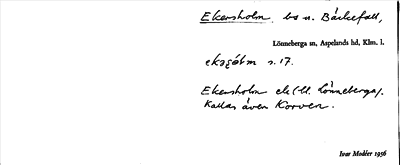 Ekersholm, bs u. Bäckefall,
Lönneberga sn, Aspelands hd, Klm. l.
s. 17.
Ekersholm ek (bl. Lönneberga).
Kallas även Korven.
Ivar Modéer 1936